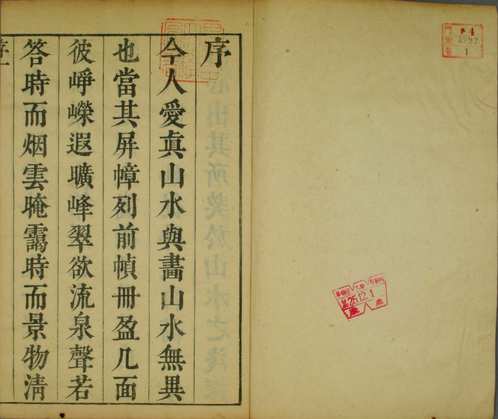 序
今人愛真山水與畵山水無異
也當其屏幛列前幀冊盈几面
彼崢嶸遐曠峰翠欲流泉聲若
答時而烟雲晻靄時而景物清
序一